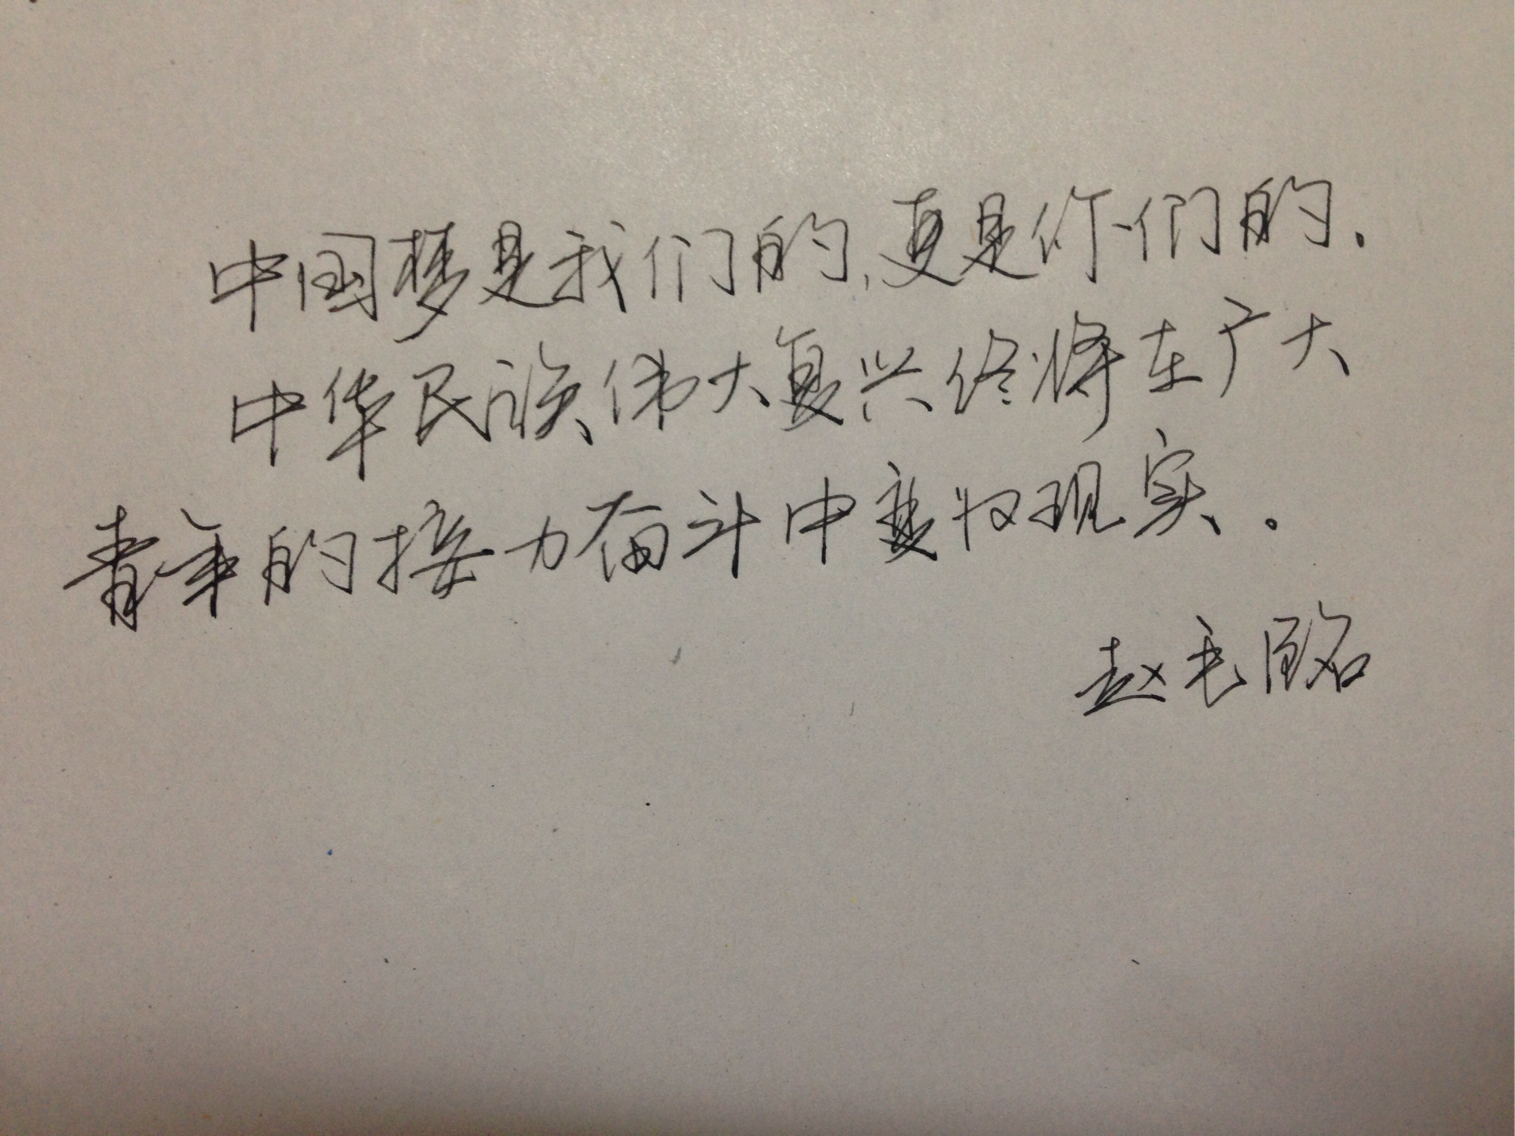 中国梦是我们的,更是你们的.
中华民族伟大复兴终将在广大
青年的接力奋斗中变为现实.
赵毛